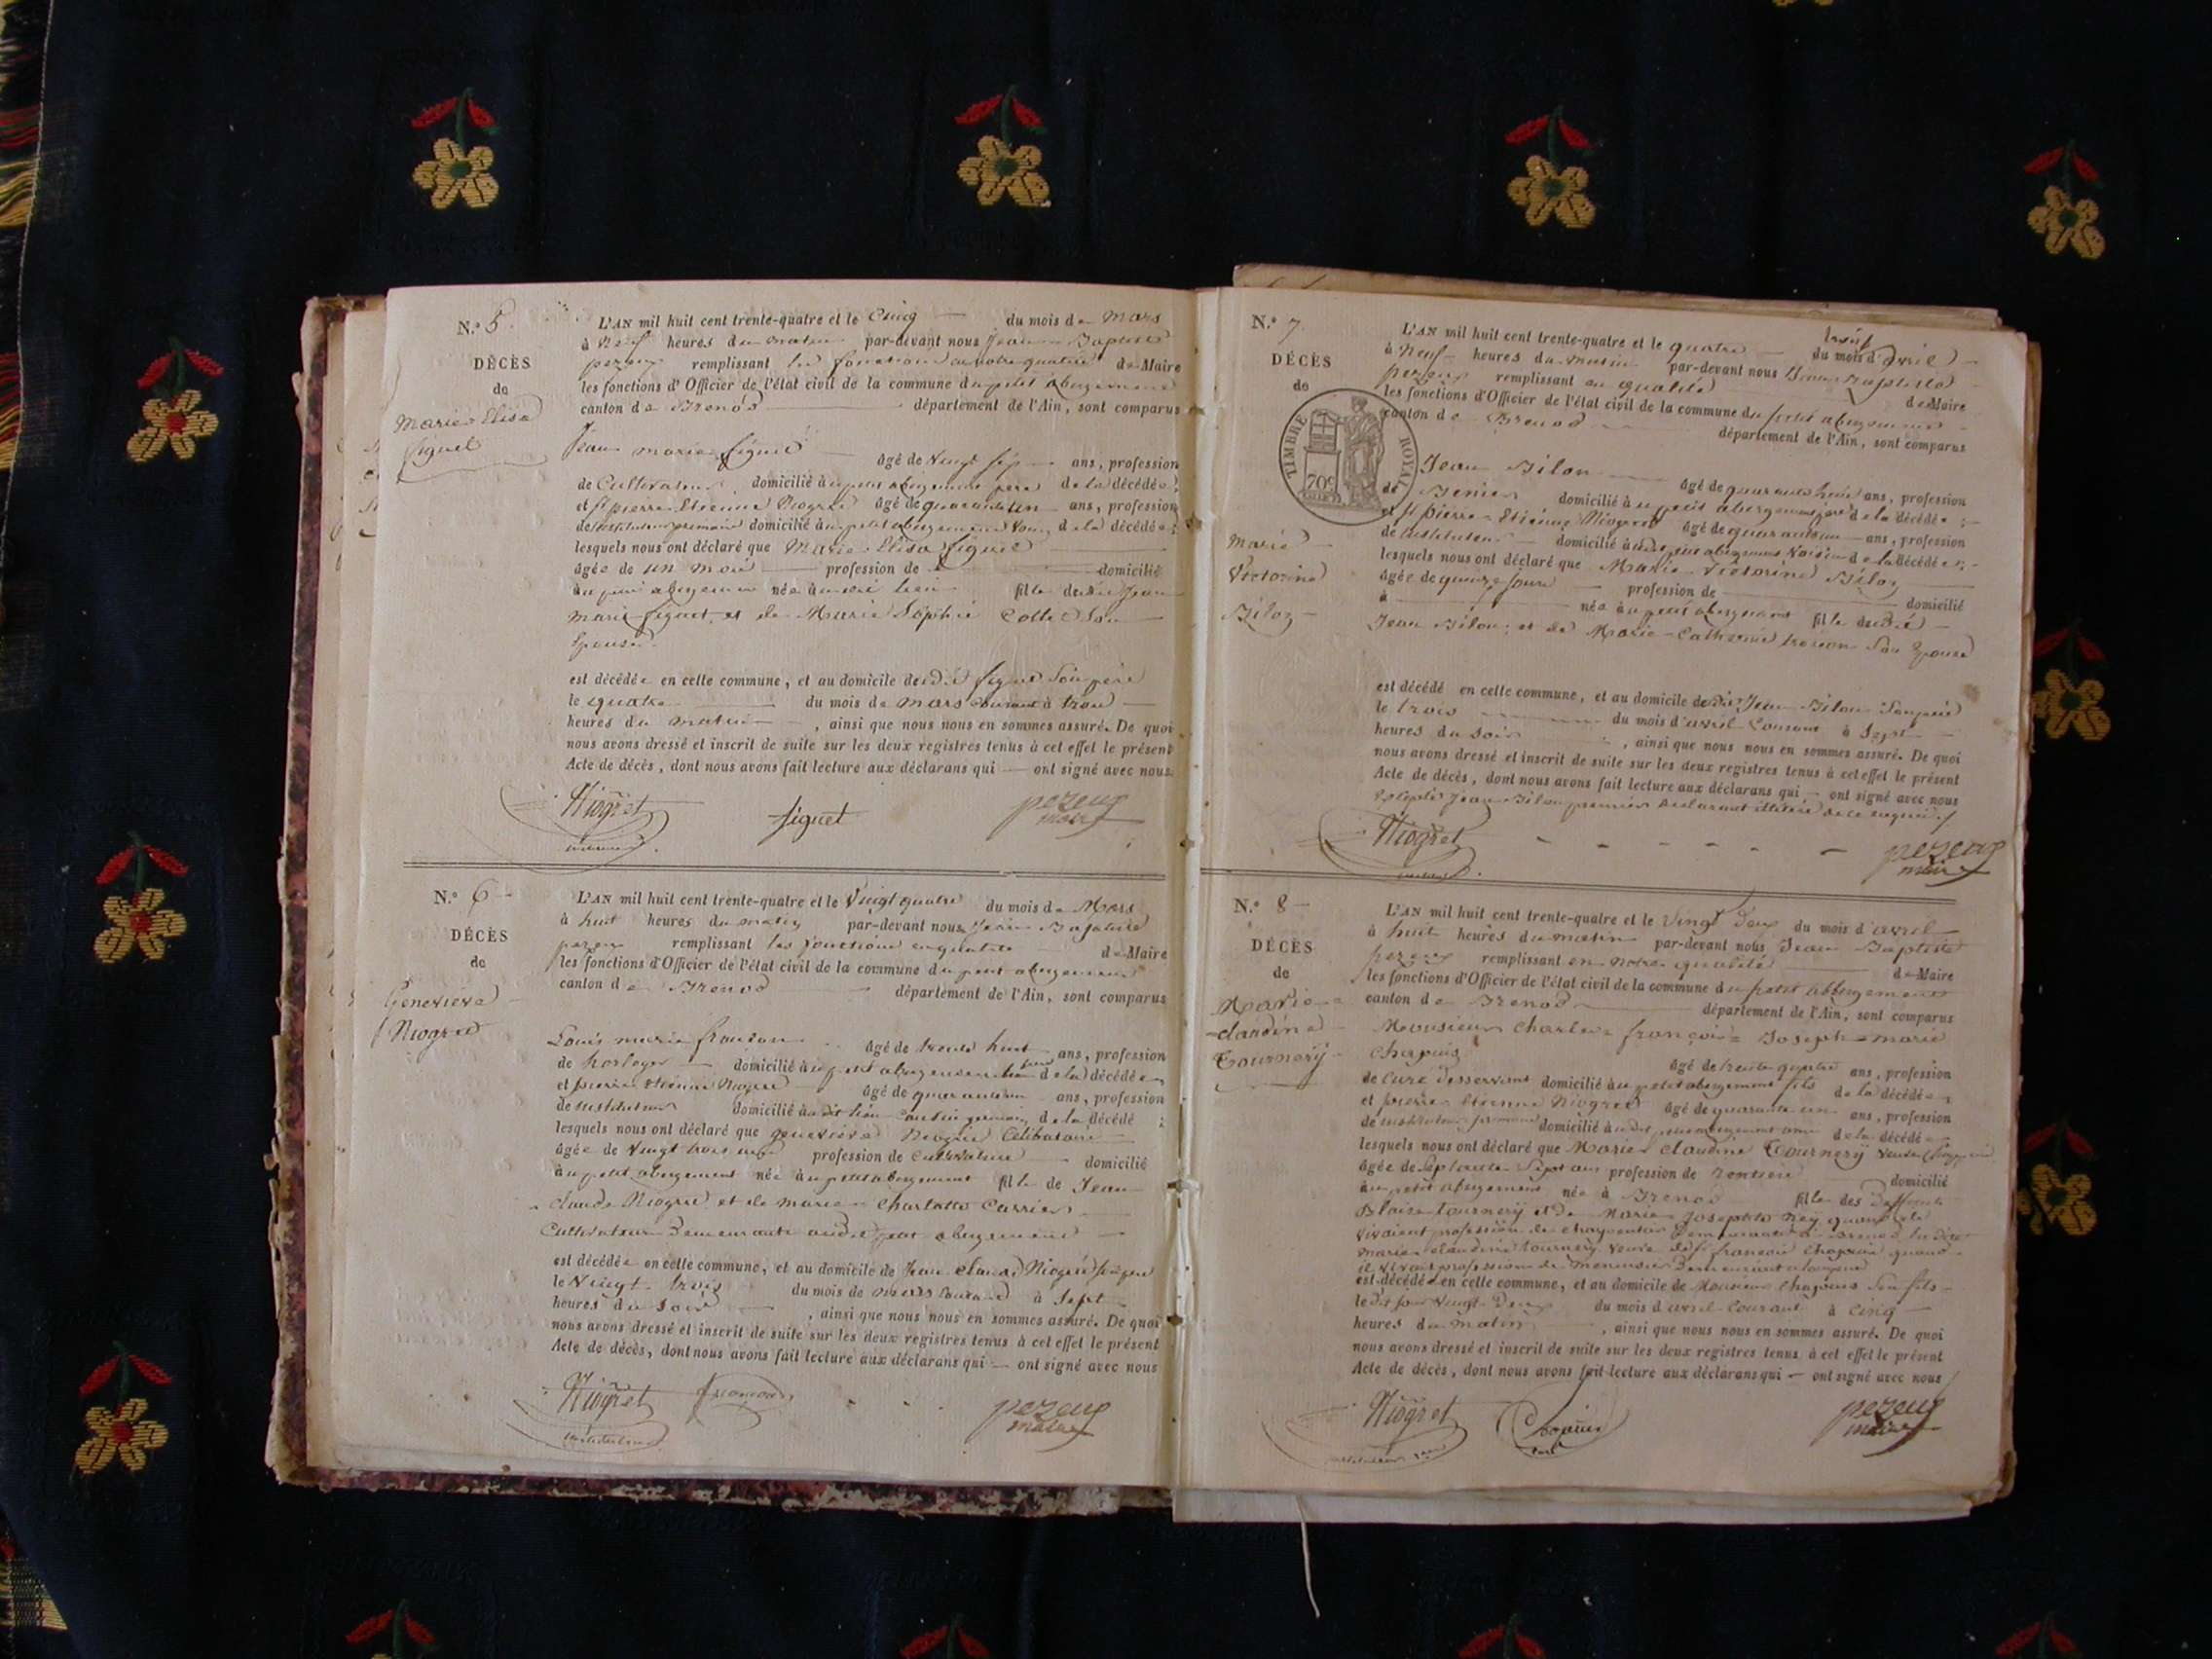 N.° 5
DÉCÈS
de
Marie Elisa
Siguet
L'AN mil huit cent trente-quatre et le Cinq du mois de Mars
à Neuf heures du matin par-devant nous Jean Baptiste
pezeux remplissant de Maire
les fonctions d'Officier de l'état civil de la commune du petit abergement
canton de Brenod département de l'Ain, sont comparus
Jean marie Siguet âgé de Vingt Sept ans, profession
de Cultivateur domicilié au petit abergement père de la décédée;
et St pierre Etienne Niogret âgé de quarante un ans, profession
domicilié au petit abergement de la décédée;
lesquels nous ont déclaré que Marie Elisa Siguet
âgée de un mois profession de domicilié
au petit abergement née audit lieu fille dudit Jean
Marie Siguet et de Marie Sophie Collet Son
Epouse
est décédée en cette commune, et au domicile dudit Siguet Son père
le quatre du mois de mars courant à trois
heures du matin, ainsi que nous nous en sommes assuré. De quoi
nous avons dressé et inscrit de suite sur les deux registres tenus à cet effet le présent
Acte de décès, dont nous avons fait lecture aux déclarans qui ont signé avec nous
Niogret Siguet pezeux
maire
N.° 6
DÉCÈS
de
Genevieve
Niogret
L'AN mil huit cent trente-quatre et le Vingt quatre du mois de Mars
à huit heures du matin par-devant nous Jean Baptiste
pezeux remplissant les fonctions en qualité de Maire
les fonctions d'Officier de l'état civil de la commune du petit abergement
canton de Brenod département de l'Ain, sont comparus
Louis marie françon âgé de trente huit ans, profession
de horloger domicilié au petit abergement de la décédée
et pierre Etienne Niogret âgé de quarante un ans, profession
de instituteur domicilié audit lieu Cousin germain de la décédé;
lesquels nous ont déclaré que genevieve Niogret Célibataire
âgée de Vingt trois ans profession de Cultivatrice domicilié
au petit abergement née au petit abergement fille de Jean
claude Niogret et de marie Charlotte Carrier
Cultivateurs Demeurants audit petit abergement
est décédée en cette commune, et au domicile de Jean claude Niogret Son père
le Vingt trois du mois de mars courant à Sept
heures du Soir, ainsi que nous nous en sommes assuré. De quoi
nous avons dressé et inscrit de suite sur les deux registres tenus à cet effet le présent
Acte de décès, dont nous avons fait lecture aux déclarans qui ont signé avec nous
Niogret françon pezeux
instituteur maire
N.° 7
DÉCÈS
de
TIMBRE ROYAL
70c
Marie
Victorine
Biloz
L'AN mil huit cent trente-quatre et le quatre du mois d'avril
à Neuf heures du matin par-devant nous Jean Baptiste
pezeux remplissant en qualité de Maire
les fonctions d'Officier de l'état civil de la commune du petit abergement
canton de Brenod département de l'Ain, sont comparus
Jean Biloz âgé de quarante ans, profession
de domicilié au petit abergement père de la décédée;
et St pierre Etienne Niogret âgé de quarante un ans, profession
de instituteur domicilié audit petit abergement Voisin de la décédée;
lesquels nous ont déclaré que Marie Victorine Biloz
âgée de quinze jours profession de domicilié
à née au petit abergement fille dudit
Jean Biloz et de Marie Catherine Son Epouse
est décédé en cette commune, et au domicile dudit Jean Biloz Son père
le trois du mois d'avril Courant à Sept
heures du Soir, ainsi que nous nous en sommes assuré. De quoi
nous avons dressé et inscrit de suite sur les deux registres tenus à cet effet le présent
Acte de décès, dont nous avons fait lecture aux déclarans qui ont signé avec nous
Excepté Jean Biloz premier declarant illitéré de ce enquis
Niogret pezeux
maire
N.° 8
DÉCÈS
de
Marie
claudine
Tournery
L'AN mil huit cent trente-quatre et le Vingt Deux du mois d'avril
à huit heures du matin par-devant nous Jean Baptiste
pezeux remplissant en Notre qualité de Maire
les fonctions d'Officier de l'état civil de la commune du petit abbergement
canton de Brenod département de l'Ain, sont comparus
Monsieur Charles françois Joseph marie
Chapuis âgé de trente quatre ans, profession
de Curé Desservant domicilié au petit abergement fils de la décédée
et pierre Etienne Niogret âgé de quarante un ans, profession
de instituteur primaire domicilié audit petit abergement ami de la décédée
lesquels nous ont déclaré que Marie claudine Tournery Veuve Chapuis
âgée de Septante Sept ans profession de rentière domicilié
au petit abergement née à Brenod fille des Deffunts
Blaise Tournery et de Marie Josephte Ney quand ils
vivaient profession de charpentier Demeurant à Brenod la dite
marie claudine tournery Veuve de françois Chapuis quand
il vivait profession de menuisier Demeurant
est décédée en cette commune, et au domicile de Monsieur Chapuis Son fils
le dit jour Vingt Deux du mois d'avril Courant à Cinq
heures du matin, ainsi que nous nous en sommes assuré. De quoi
nous avons dressé et inscrit de suite sur les deux registres tenus à cet effet le présent
Acte de décès, dont nous avons fait lecture aux déclarans qui ont signé avec nous
Niogret Chapuis pezeux
curé maire